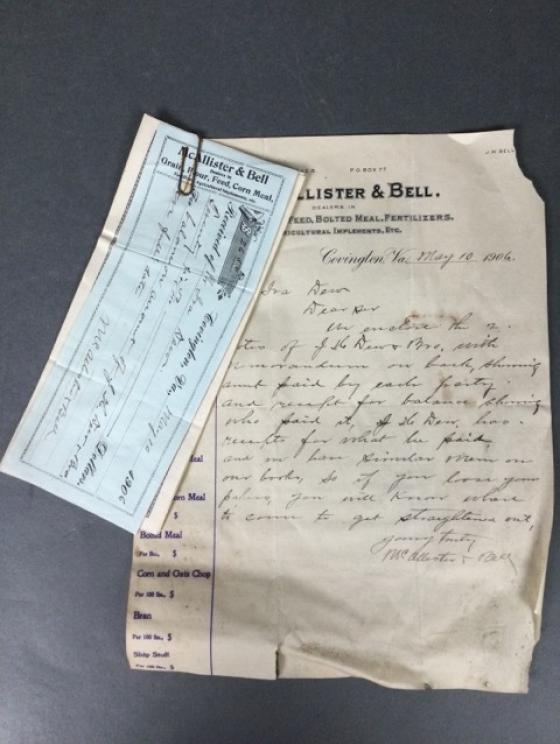 McAllister & Bell
Dealers in
Grain, Flour, Feed, Corn Meal,
Covington, Va. May 10 1906
Received of Ira Dew
Dollars
McAllister & Bell
P.O. BOX 77
J.M. BELL
LLISTER & BELL.
DEALERS IN
FEED, BOLTED MEAL, FERTILIZERS,
RICULTURAL IMPLEMENTS, ETC.
Covington, Va. May 10 1906.
Ira Dew
Dear Sir
We enclose the 2
of J H Dew & Bro, with
memorandum on back, showing
amt paid by each party.
and receipt for balance showing
who paid it, J H Dew, has
receipts for what he paid,
and we have similar mem on
our books, so if you loose your
papers, you will know where
to come to get straightened out,
yours truly
McAllister & Bell
orn Meal
$
Bolted Meal
Per Bu., $
Corn and Oats Chop
Per 100 lbs., $
Bran
Per 100 lbs., $
Ship Stuff
Per 100 lbs., $